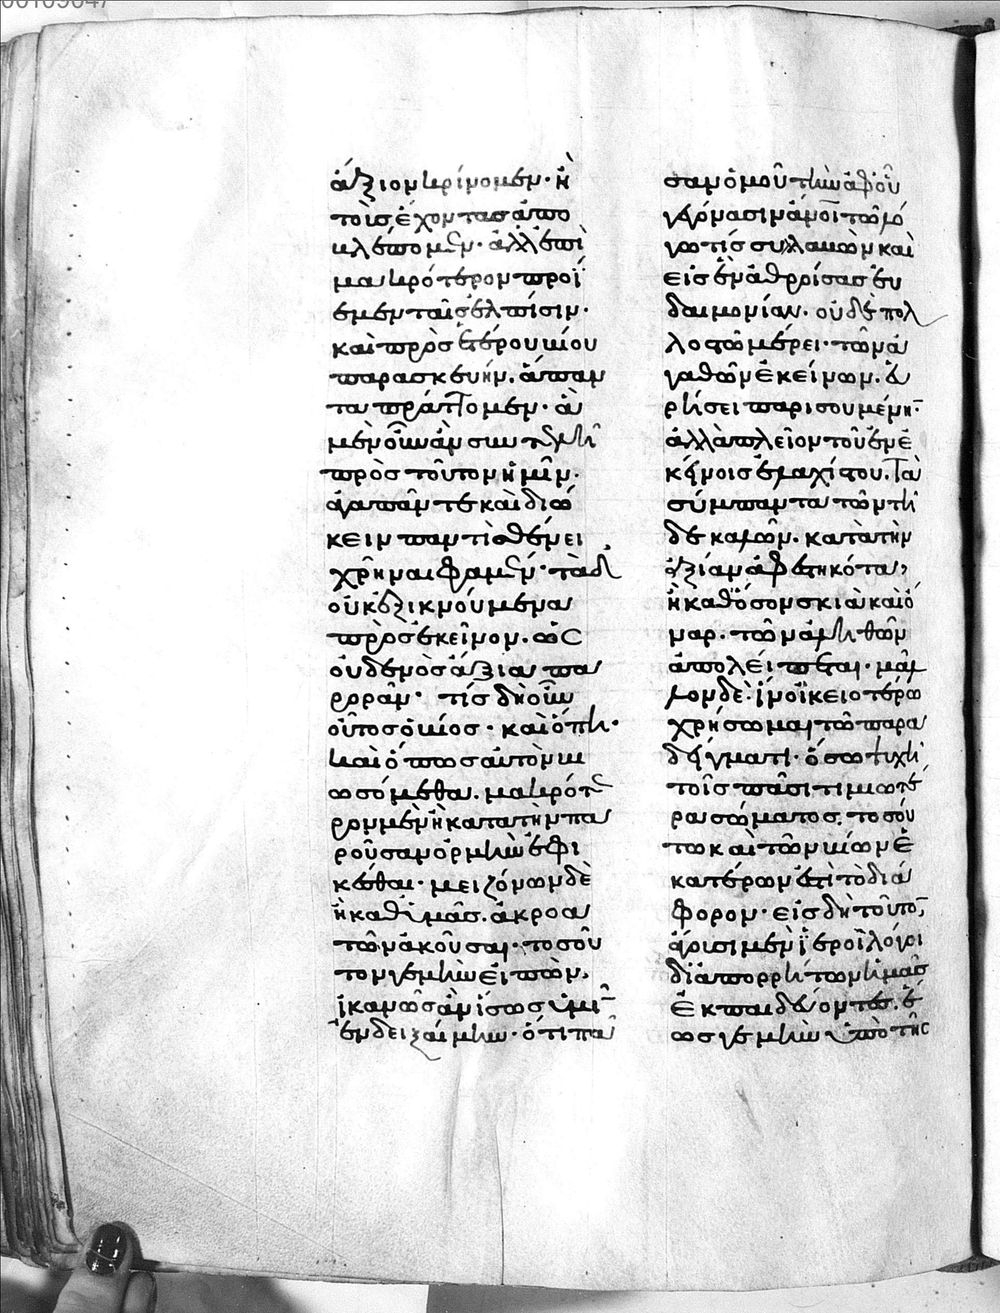 ἄξιον κρίνομεν· ἢ
τοῖς ἔχοντας ἀπο
καλέσομεν· ἀλλ' ἐπὶ
μακρότερον πρόϊ
εμεν ταῖς ἐλπίσιν·
καὶ πρὸς ἑτέρου βίου
παρασκευὴν. ἅπαν
τα πράττομεν· ἃ
μὲν οὖν ἂν συντελῆ
πρὸς τοῦτον ἡμῖν·
ἀγαπᾶν τε καὶ διώ
κειν παντὶ σθένει
χρῆναι φαμὲν· τὰ δ'
οὐκ ἐξικνούμενα
πρὸς ἐκεῖνον. ὡς
οὐδενὸς ἄξια πα
ρορᾶν· τίς δὴ οὖν
οὗτος ὁ βίος· καὶ ὅπη·
καὶ ὅπως αὐτὸν βι
ωσόμεθα. μακρότε
ρον μὲν ἢ κατὰ τὴν πα
ροῦσαν ὁρμὴν ἐφι
κέσθαι· μειζόνων δὲ
ἢ καθ' ἡμᾶς. ἀκροα
τῶν ἀκοῦσαι· τοσοῦ
τον γε μὴν εἰπὼν.
ἱκανῶς ἂν ἴσως ὑμῖν
ἐνδειξαίμην· ὅτι πᾶ
σαν ὁμοῦ τὴν ἀφ' οὗ
γεγόνασιν ἄνθρωποι τῶ λό
γω τίς συλλαβὼν καὶ
εἰς ἓν ἀθροίσας εὐ
δαιμονίαν. οὐδὲ πολ
λοστῶ μέρει· τῶν ἀ
γαθῶν ἐκείνων. εὑ
ρήσει παρισουμένην·
ἀλλὰ πλεῖον τοῦ ἐν ἐ
κείνοις ἐλαχίστου. τὰ
σύμπαντα τῶν τῆ
δε καλῶν. κατὰ τὴν
ἀξίαν ἀφεστηκότα,
ἢ καθ' ὅσον σκιὰ καὶ ὄ
ναρ. τῶν ἀληθῶν
ἀπολείπεται· μᾶλ
λον δὲ. ἵν' οἰκειοτέρω
χρήσωμαι τῶ παρα
δείγματι· ὅσω ψυχὴ
τοῖς πᾶσι τιμιωτέ
ρα σώματος. τοσού
τω καὶ τῶν βίων ἑ
κατέρων ἐστὶ τὸ διά
φορον· εἰς δὴ τοῦτον
ἄγουσι μὲν ἱεροὶ λόγοι
δι' ἀπορρήτων ἡμᾶς
ἐκπαιδεύοντες. ἕ
ως γε μὴν ὑπὸ τῆς